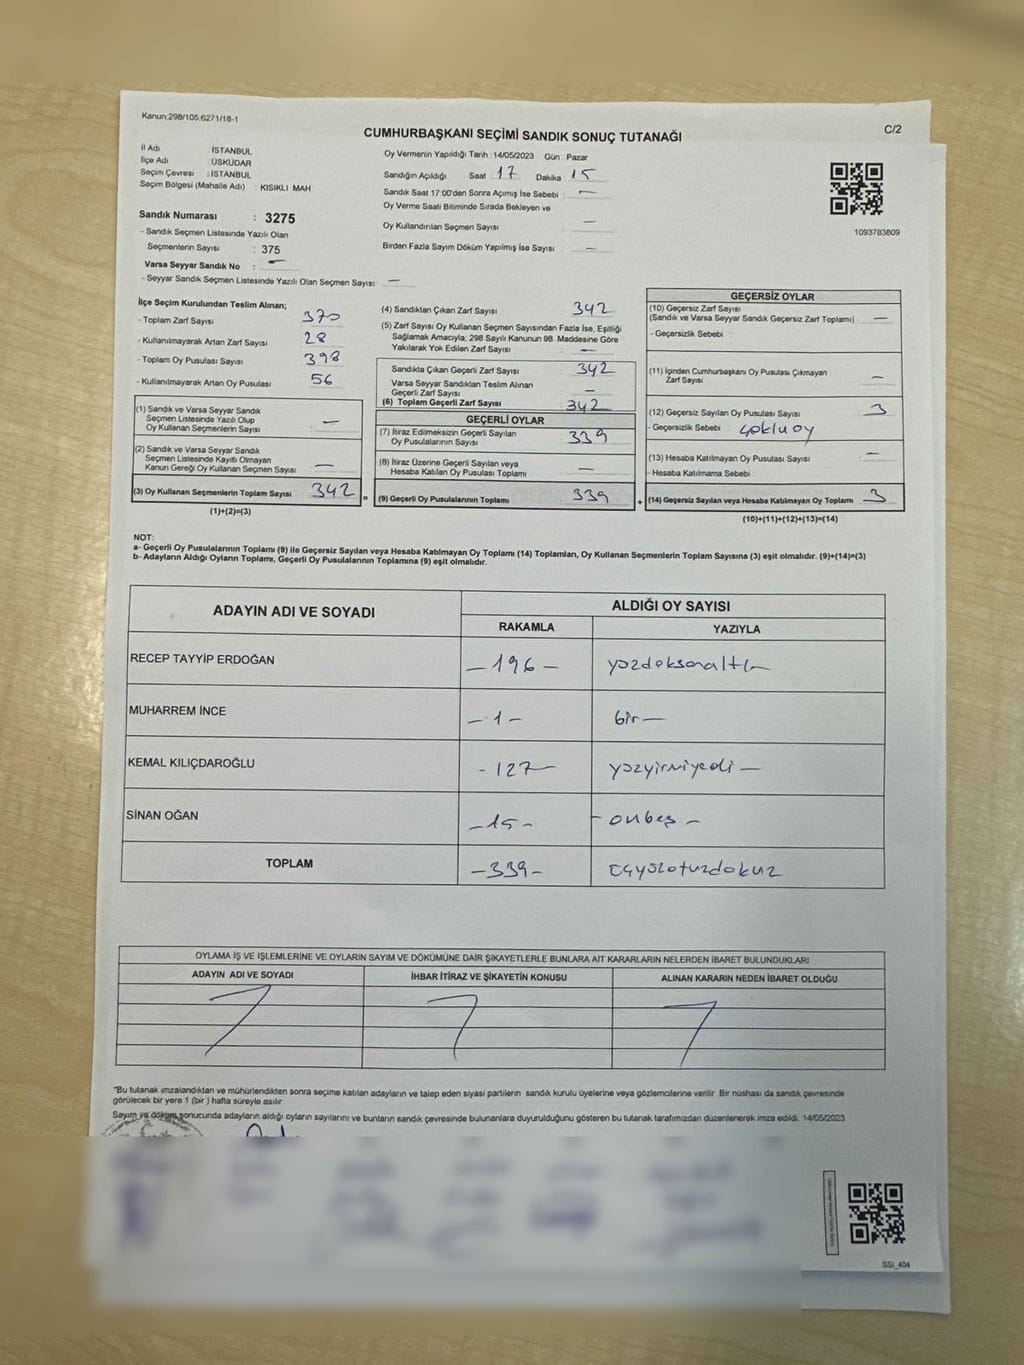 Kanun;298/105,6271/18-1
C/2
CUMHURBAŞKANI SEÇİMİ SANDIK SONUÇ TUTANAĞI
İl Adı İSTANBUL
İlçe Adı : ÜSKÜDAR
Seçim Çevresi : İSTANBUL
Seçim Bölgesi (Mahalle Adı) : KISIKLI MAH.
Sandık Numarası : 3275
- Sandık Seçmen Listesinde Yazılı Olan
Seçmenlerin Sayısı : 375
Varsa Seyyar Sandık No : —
- Seyyar Sandık Seçmen Listesinde Yazılı Olan Seçmen Sayısı: —
Oy Vermenin Yapıldığı Tarih :14/05/2023 Gün : Pazar
Sandığın Açıldığı Saat : 17 Dakika : 15
Sandık Saat 17:00'den Sonra Açımış İse Sebebi : —
Oy Verme Saati Bitiminde Sırada Bekleyen ve
Oy Kullandırılan Seçmen Sayısı : —
Birden Fazla Sayım Döküm Yapılmış İse Sayısı : —
1093783809
İlçe Seçim Kurulundan Teslim Alınan;
- Toplam Zarf Sayısı : 370
- Kullanılmayarak Artan Zarf Sayısı : 28
- Toplam Oy Pusulası Sayısı : 398
- Kullanılmayarak Artan Oy Pusulası : 56
(1) Sandık ve Varsa Seyyar Sandık
Seçmen Listesinde Yazılı Olup
Oy Kullanan Seçmenlerin Sayısı : —
(2) Sandık ve Varsa Seyyar Sandık
Seçmen Listesinde Kayıtlı Olmayan
Kanun Gereği Oy Kullanan Seçmen Sayısı : —
(3) Oy Kullanan Seçmenlerin Toplam Sayısı : 342 =
(1)+(2)=(3)
(4) Sandıktan Çıkan Zarf Sayısı : 342
(5) Zarf Sayısı Oy Kullanan Seçmen Sayısından Fazla İse, Eşitliği
Sağlamak Amacıyla; 298 Sayılı Kanunun 98. Maddesine Göre
Yakılarak Yok Edilen Zarf Sayısı : —
Sandıkta Çıkan Geçerli Zarf Sayısı : 342
Varsa Seyyar Sandıktan Teslim Alınan
Geçerli Zarf Sayısı : —
(6) Toplam Geçerli Zarf Sayısı : 342
GEÇERLİ OYLAR
(7) İtiraz Edilmeksizin Geçerli Sayılan
Oy Pusulalarının Sayısı : 339
(8) İtiraz Üzerine Geçerli Sayılan veya
Hesaba Katılan Oy Pusulası Toplamı : —
(9) Geçerli Oy Pusulalarının Toplamı : 339 +
GEÇERSİZ OYLAR
(10) Geçersiz Zarf Sayısı
(Sandık ve Varsa Seyyar Sandık Geçersiz Zarf Toplamı) : —
- Geçersizlik Sebebi :
(11) İçinden Cumhurbaşkanı Oy Pusulası Çıkmayan
Zarf Sayısı : —
(12) Geçersiz Sayılan Oy Pusulası Sayısı : 3
- Geçersizlik Sebebi : çokluoy
(13) Hesaba Katılmayan Oy Pusulası Sayısı : —
- Hesaba Katılmama Sebebi :
(14) Geçersiz Sayılan veya Hesaba Katılmayan Oy Toplamı : 3
(10)+(11)+(12)+(13)=(14)
NOT:
a- Geçerli Oy Pusulalarının Toplamı (9) ile Geçersiz Sayılan veya Hesaba Katılmayan Oy Toplamı (14) Toplamları, Oy Kullanan Seçmenlerin Toplam Sayısına (3) eşit olmalıdır. (9)+(14)=(3)
b- Adayların Aldığı Oyların Toplamı, Geçerli Oy Pusulalarının Toplamına (9) eşit olmalıdır.
ADAYIN ADI VE SOYADI ALDIĞI OY SAYISI
RAKAMLA YAZIYLA
RECEP TAYYİP ERDOĞAN — 196 — yüzdoksanaltı —
MUHARREM İNCE — 1 — bir —
KEMAL KILIÇDAROĞLU - 127 — yüzyirmiyedi —
SİNAN OĞAN — 15 - - onbeş -
TOPLAM — 339 - üçyüzotuzdokuz
OYLAMA İŞ VE İŞLEMLERİNE VE OYLARIN SAYIM VE DÖKÜMÜNE DAİR ŞİKAYETLERLE BUNLARA AİT KARARLARIN NELERDEN İBARET BULUNDUKLARI
ADAYIN ADI VE SOYADI İHBAR İTİRAZ VE ŞİKAYETİN KONUSU ALINAN KARARIN NEDEN İBARET OLDUĞU
*Bu tutanak imzalandıktan ve mühürlendikten sonra seçime katılan adayların ve talep eden siyasi partilerin sandık kurulu üyelerine veya gözlemcilerine verilir. Bir nüshası da sandık çevresinde
görülecek bir yere 1 (bir ) hafta süreyle asılır
Sayım ve döküm sonucunda adayların aldığı oyların sayılarını ve bunların sandık çevresinde bulunanlara duyurulduğunu gösteren bu tutanak tarafımızdan düzenlenerek imza edildi. 14/05/2023
SSİ_404